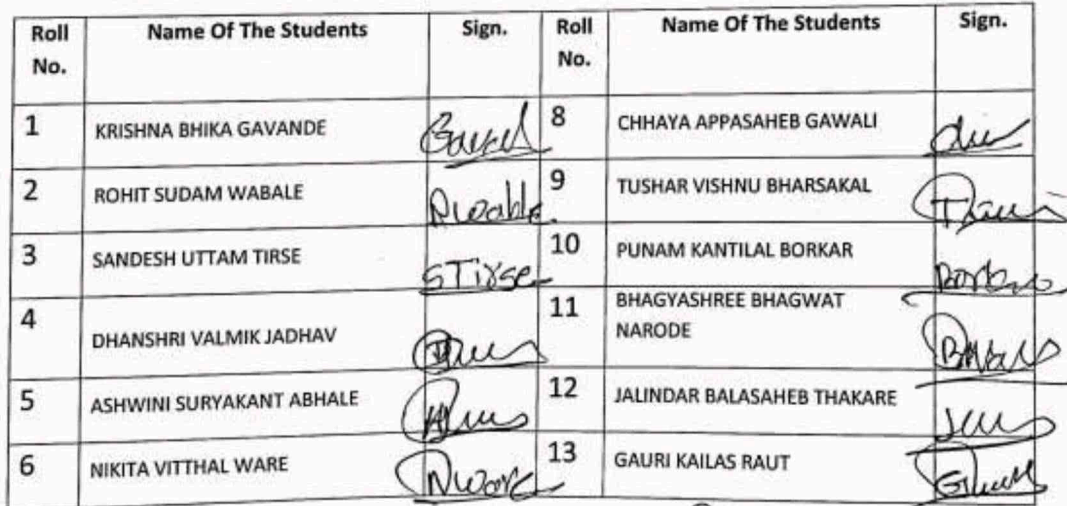 Roll No. Name Of The Students Sign. Roll No. Name Of The Students Sign.
1 KRISHNA BHIKA GAVANDE 8 CHHAYA APPASAHEB GAWALI
2 ROHIT SUDAM WABALE Rwable. 9 TUSHAR VISHNU BHARSAKAL
3 SANDESH UTTAM TIRSE STirse 10 PUNAM KANTILAL BORKAR
4 DHANSHRI VALMIK JADHAV 11 BHAGYASHREE BHAGWAT
NARODE
5 ASHWINI SURYAKANT ABHALE 12 JALINDAR BALASAHEB THAKARE
6 NIKITA VITTHAL WARE Nware 13 GAURI KAILAS RAUT